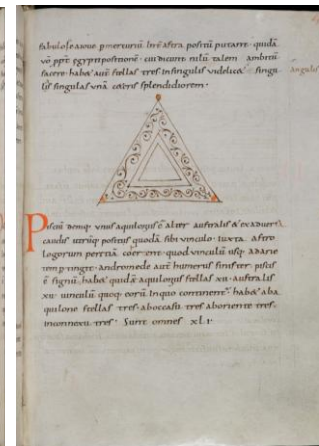 fabulose autē p mercuriū inter astra positū putare. quidā
vō ppt egypti positionē. cui dicunt nilū talem ambitū
facere. habet autē stellas tres in singulis videlicet singu
angulis
lis singulas unā ceteris splendidiorem.
Pisciū deniq. unus aquilonius ē alter australis & ex adversa
caudis utriq. positus quodā sibi vinculo. iuxta astro
logorum coerent. quod vinculū usq. ad arie
tem Andromede autē humerus sinister piscis
ē signū. habet quidā aquilonius stellas XII. australis
XII. vinculū quoq. eorū. in quo continentur habet ab a
quilone stellas tres. ab occasu tres ab oriente tres.
in connexu tres. Sunt omnes XLI.